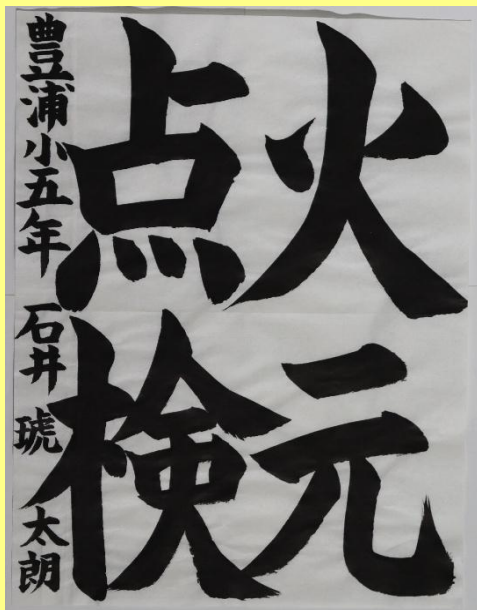 火元
点検
豊浦小五年 石井琥太朗